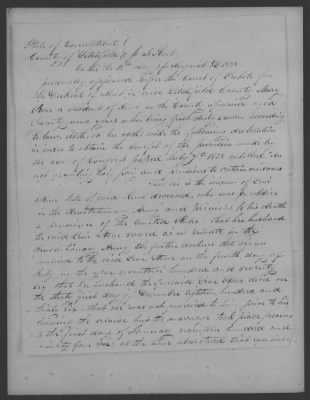 State of Connecticut }
County of Litchfield } ss at Kent
On this 18th day of August AD 1838
personally appeared before the Court of Probate for
the District of Kent, in said Litchfield County Mary
Stone a resident of Kent in the County aforesaid aged
Seventy nine years who being first duly sworn according
to law, doth, on her oath make the following declaration
in order to obtain the benefit of the provision made by
the act of Congress passed July 7th 1838 entitled "An
act granting half pay and pensions to certain widows
That she is the widow of
Stone late of said Kent deceased, who was a soldier
in the Revolutionary Army and previous to his death
a pensioner of the United States that her husband
the said Stone served as a private in the
Revolutionary Army She further declares that she was
married to the said Stone on the fourth day of
July in the year seventeen hundred and
six that her husband the aforesaid Stone died on
the thirty first day of December eighteen hundred and
thirty six that she was not married to him prior to his
leaving the service but the marriage took place previous
to the first day of January seventeen hundred and
ninety four viz: at the time above stated that